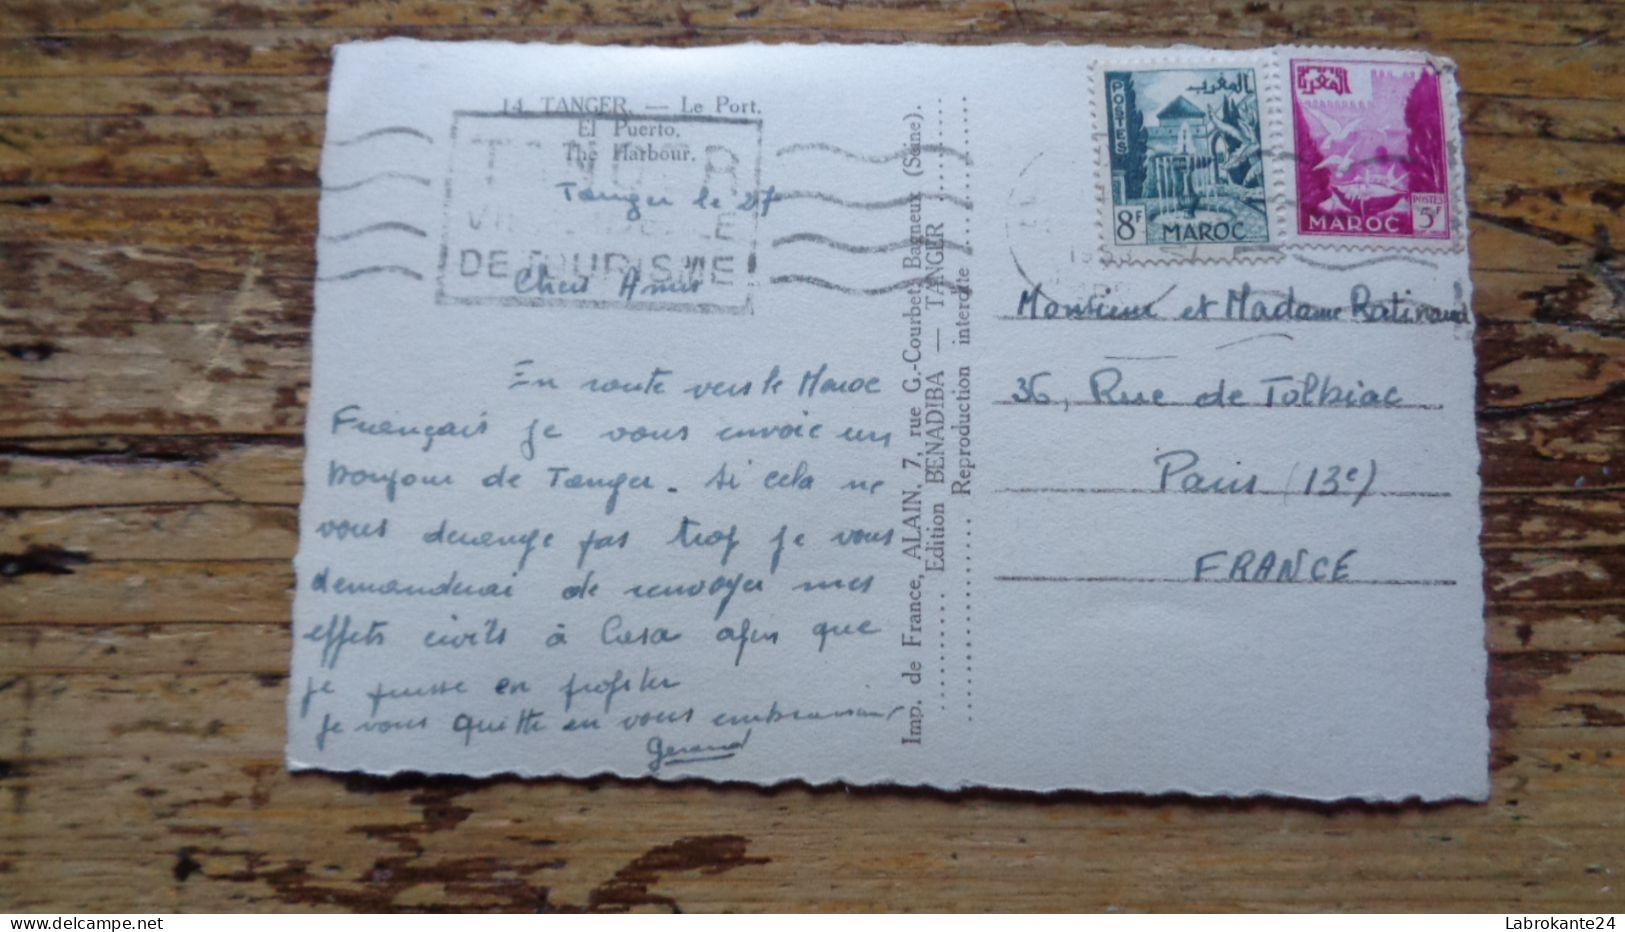 14. TANGER. — Le Port.
El Puerto.
The Harbour.
TANGER
DE TOURISME
Tanger le 27
Chers Amis
En route vers le Maroc
Français je vous envoie un
bonjour de Tanger. Si cela ne
vous derange pas trop je vous
demanderai de renvoyer mes
effets civils à Casa afin que
je puisse en profiter
Je vous quitte en vous embrassant
Gerard
Imp. de France, ALAIN, 7, rue G.-Courbet, Bagneux (Seine).
Edition BENADIBA — TANGER
Reproduction interdite
POSTES
المغرب
8F MAROC
المغرب
POSTES
MAROC 5F
Monsieur et Madame Ratinaud
36, Rue de Tolbiac
Paris (13e)
FRANCE
www.delcampe.net
Labrokante24